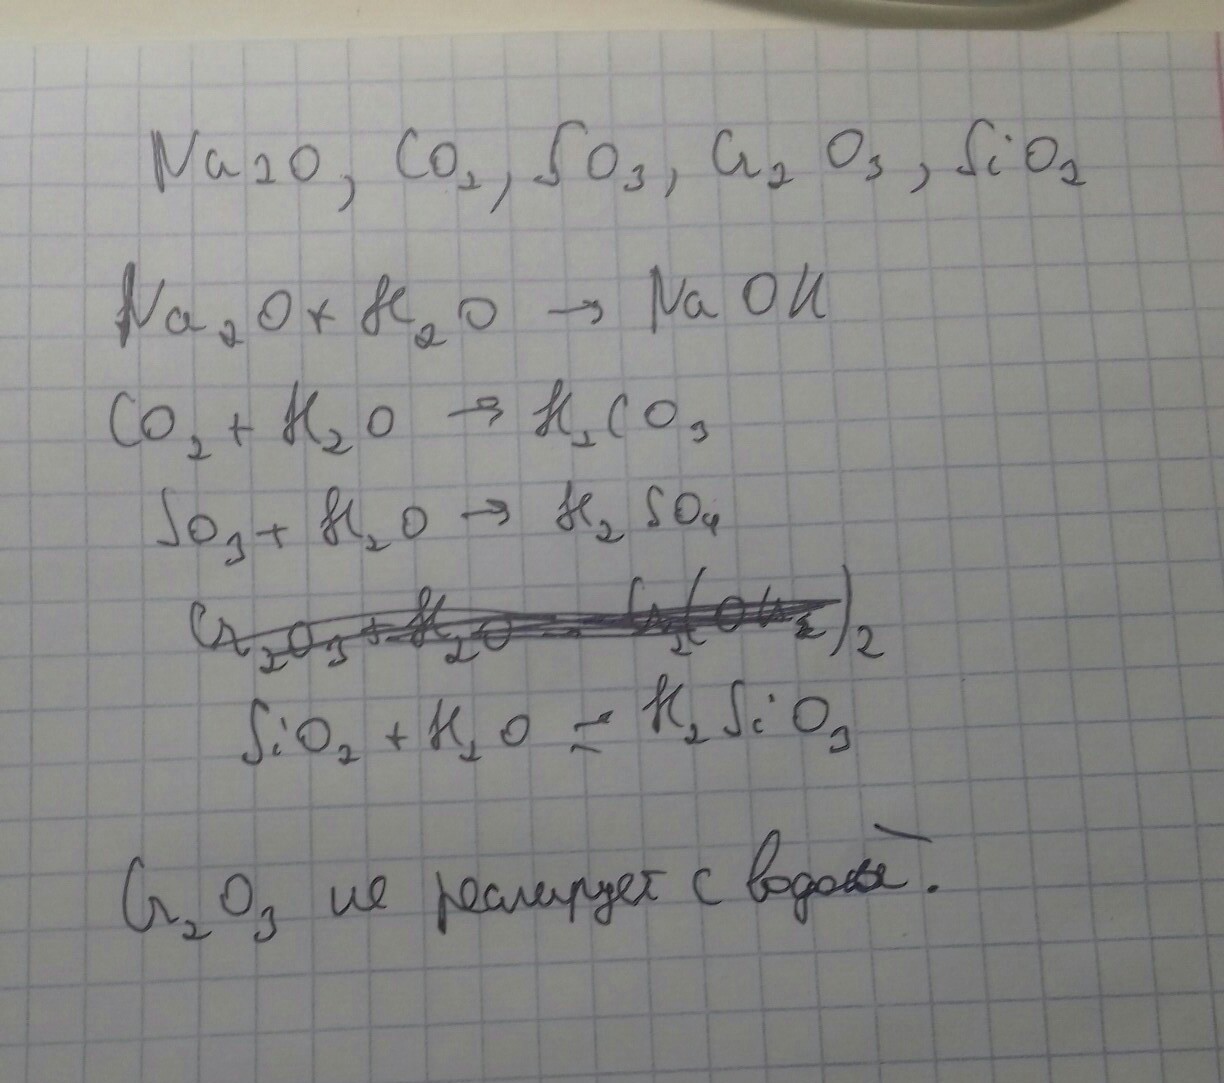 Na2O, CO₂, SO₃, Cr₂O₃, SiO₂
Na₂O + H₂O → NaOH
CO₂ + H₂O → H₂CO₃
SO₃ + H₂O → H₂SO₄
Cr₂O₃ + H₂O = )₂
SiO₂ + H₂O = H₂SiO₃
Cr₂O₃ не реагирует с водой.